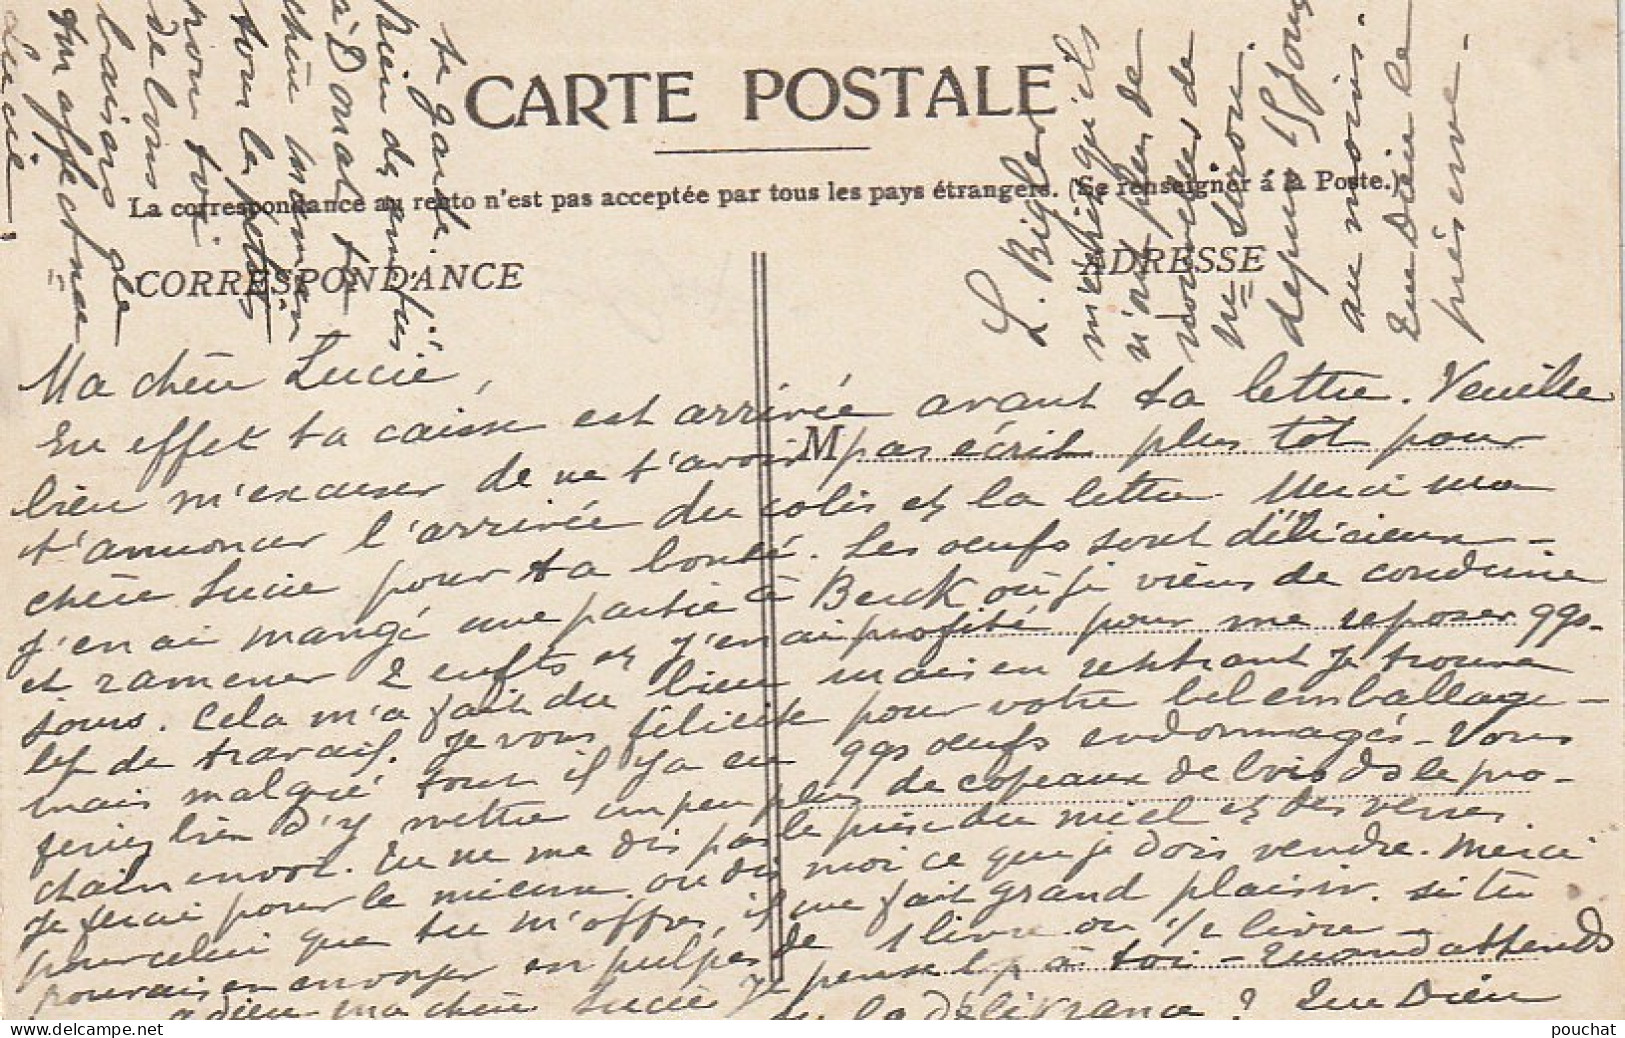 CARTE POSTALE
La correspondance au recto n'est pas acceptée par tous les pays étrangers. (Se renseigner á la Poste.)
CORRESPONDANCE
ADRESSE
M
Ma chère Lucie,
En effet ta caisse est arrivée avant ta lettre. Veuille
bien m'excuser de ne t'avoir pas écrit plus tôt pour
t'annoncer l'arrivée du colis et la lettre. Merci ma
chère Lucie pour ta bonté. Les oeufs sont délicieux -
J'en ai mangé une partie à Berck où je viens de conduire
et ramener 2 enfts et j'en ai profité pour me reposer qqs.
jours. Cela m'a fait du bien mais en rentrant je trouve
de travail. Je vous félicite pour votre bel emballage -
mais malgré tout il y a eu qqs oeufs endommagés - Vous
feriez bien d'y mettre un peu plus de copeaux de bois ds le pro-
chain envoi. Tu ne me dis pas le prix du miel et des verres.
Je ferai pour le mieux ou dis moi ce que je dois vendre. Merci
pour celui que tu m'offres, il me fait grand plaisir. Si tu
pouvais en envoyer en pulpes de 1 livre ou 1/2 livre -
adieu ma chère Lucie je pense à toi - Quand attends
la délivrance ? Que Dieu
te garde.
Bien des amitiés
à Donat ta
chère maman
tous les petits
pour toi
de bons
baisers
Ton affectionnée
Lucie
L. Bigler
m'écrit qu'ils
n'ont plus de
nouvelles de
Mr Sarou
depuis 15 jours
au moins.
Que Dieu le
préserve.
pouchat